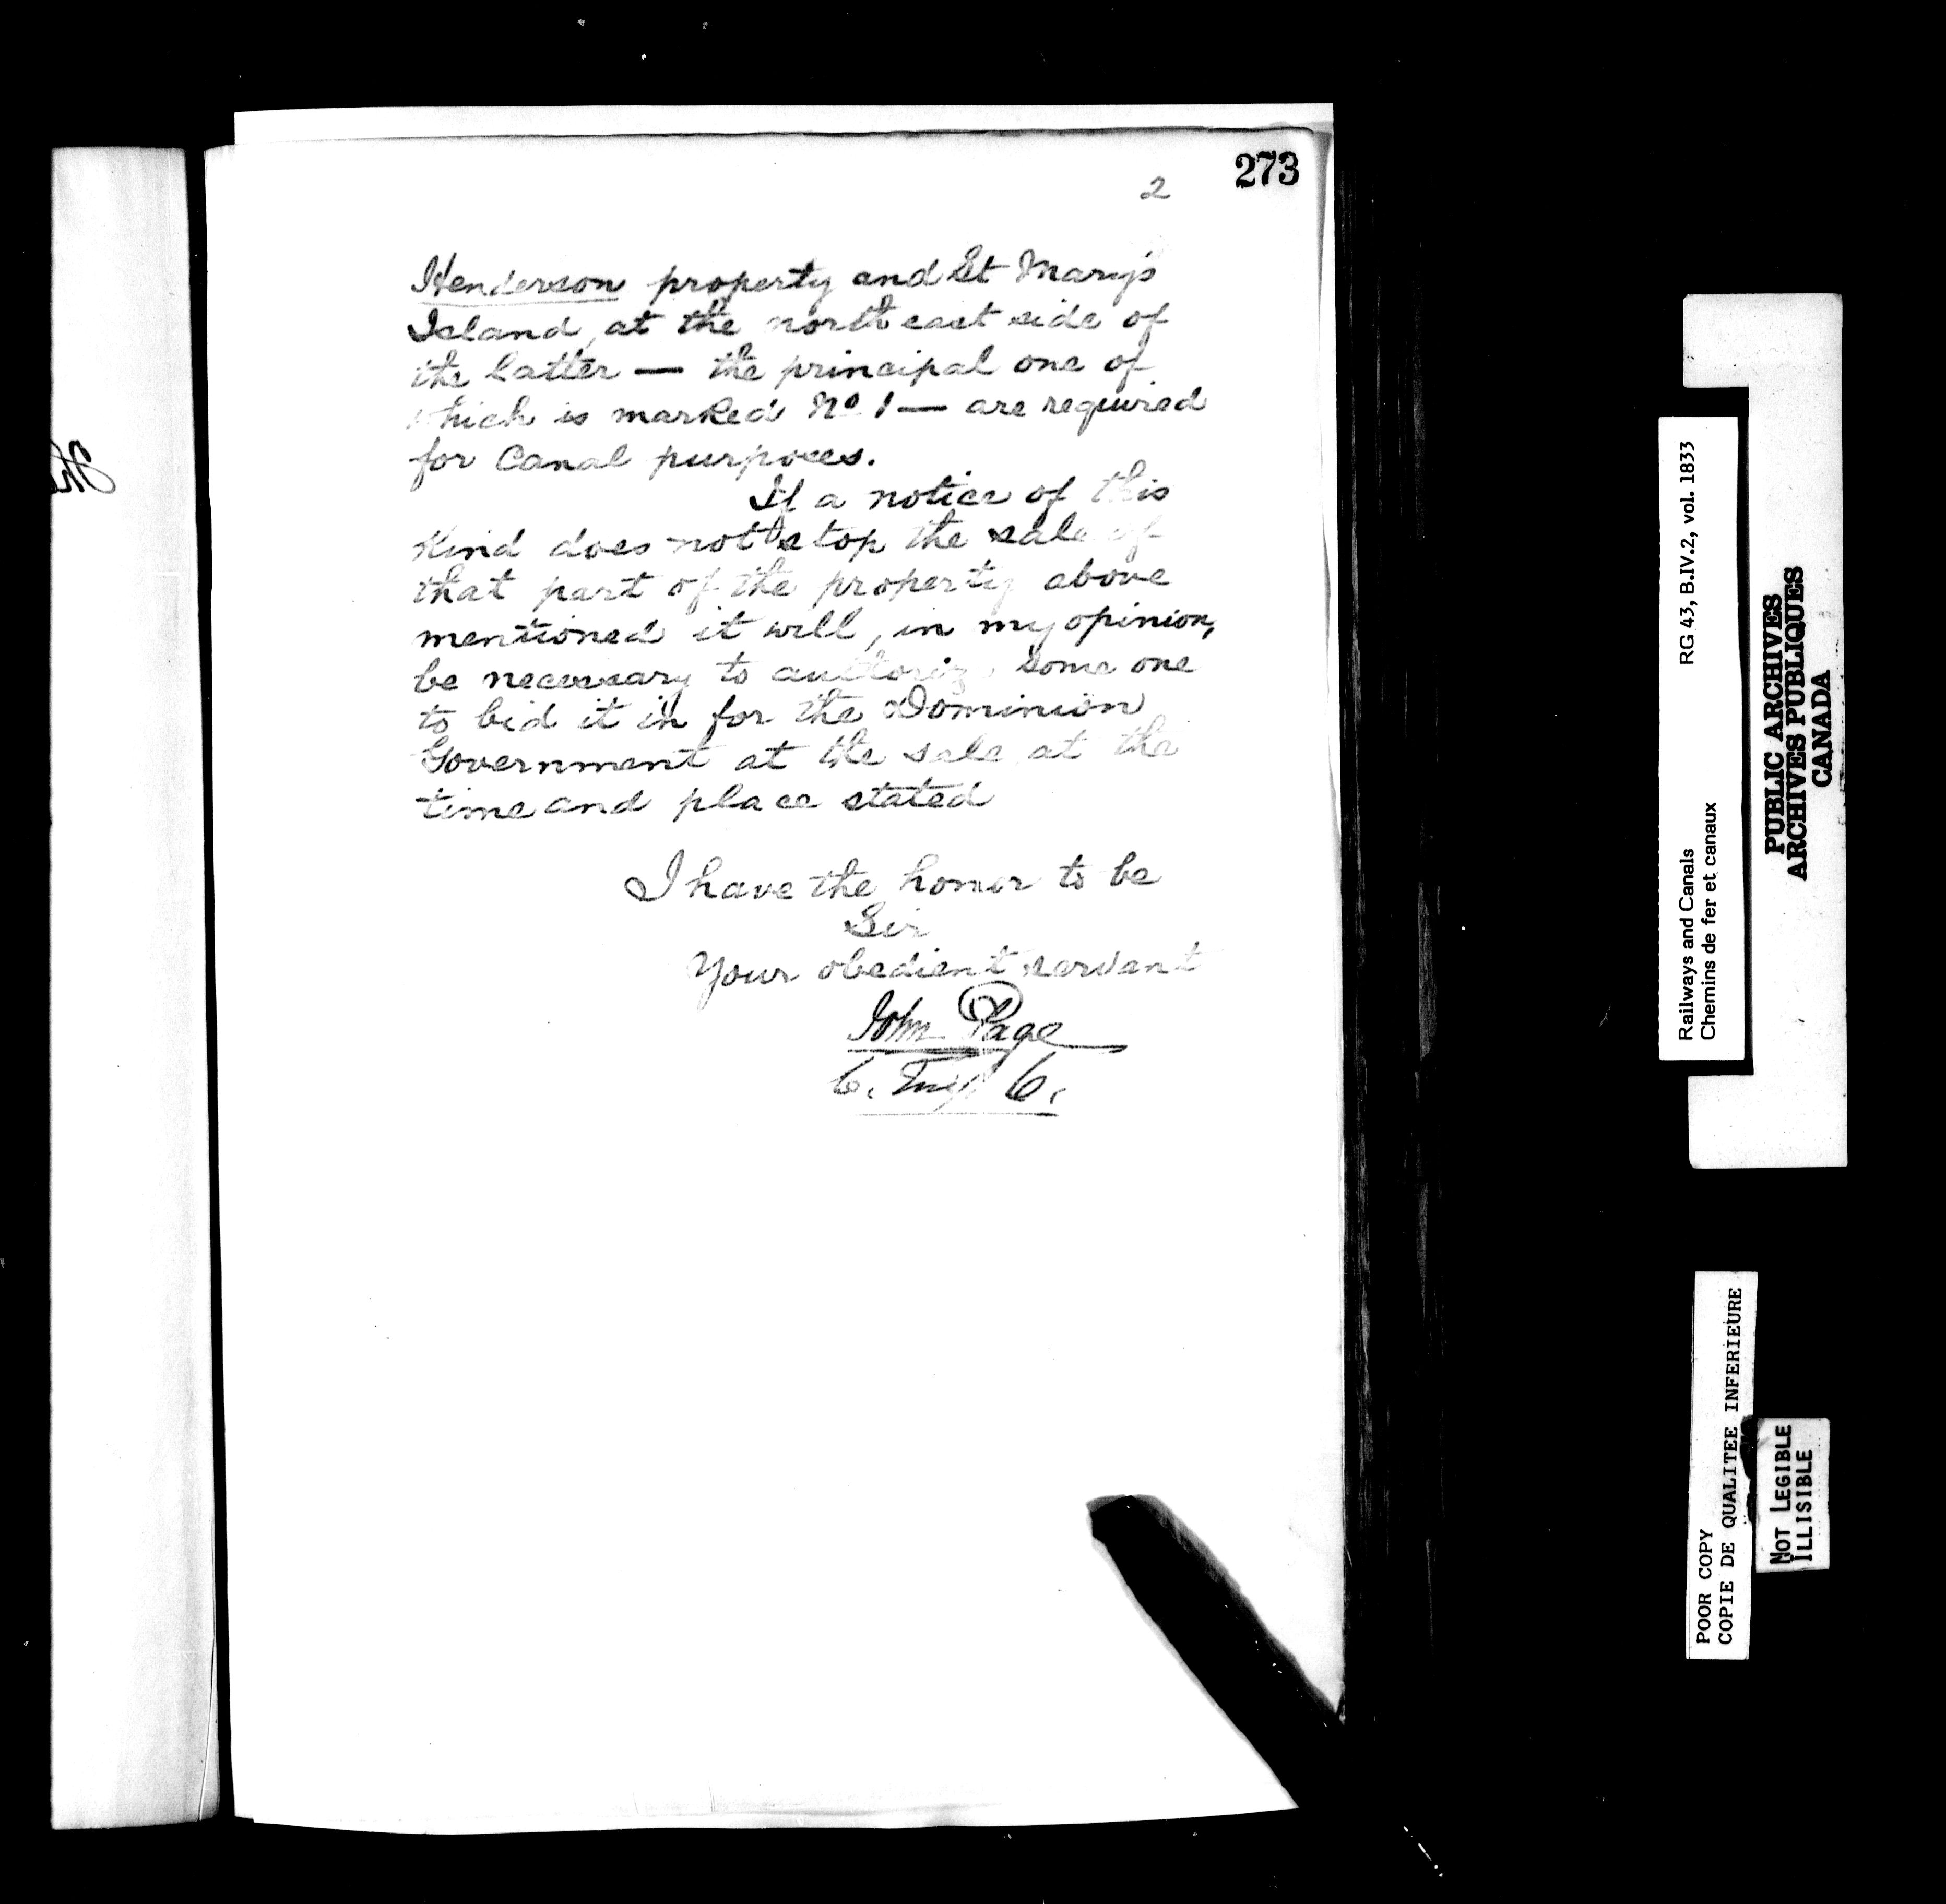 273
2
Henderson property and St Mary's
Island, at the north east side of
the latter — the principal one of
which is marked No 1 — are required
for Canal purposes.
If a notice of this
Kind does not stop the sale of
that part of the property above
mentioned it will, in my opinion,
be necessary to authorize some one
to bid it in for the Dominion
Government at the sale at the
time and place stated
I have the honor to be
Sir
Your obedient servant
John Page
C. Eng. C.
RG 43, B.IV.2, vol. 1833
Railways and Canals
Chemins de fer et canaux
PUBLIC ARCHIVES
ARCHIVES PUBLIQUES
CANADA
POOR COPY
COPIE DE QUALITEE INFERIEURE
NOT LEGIBLE
ILLISIBLE